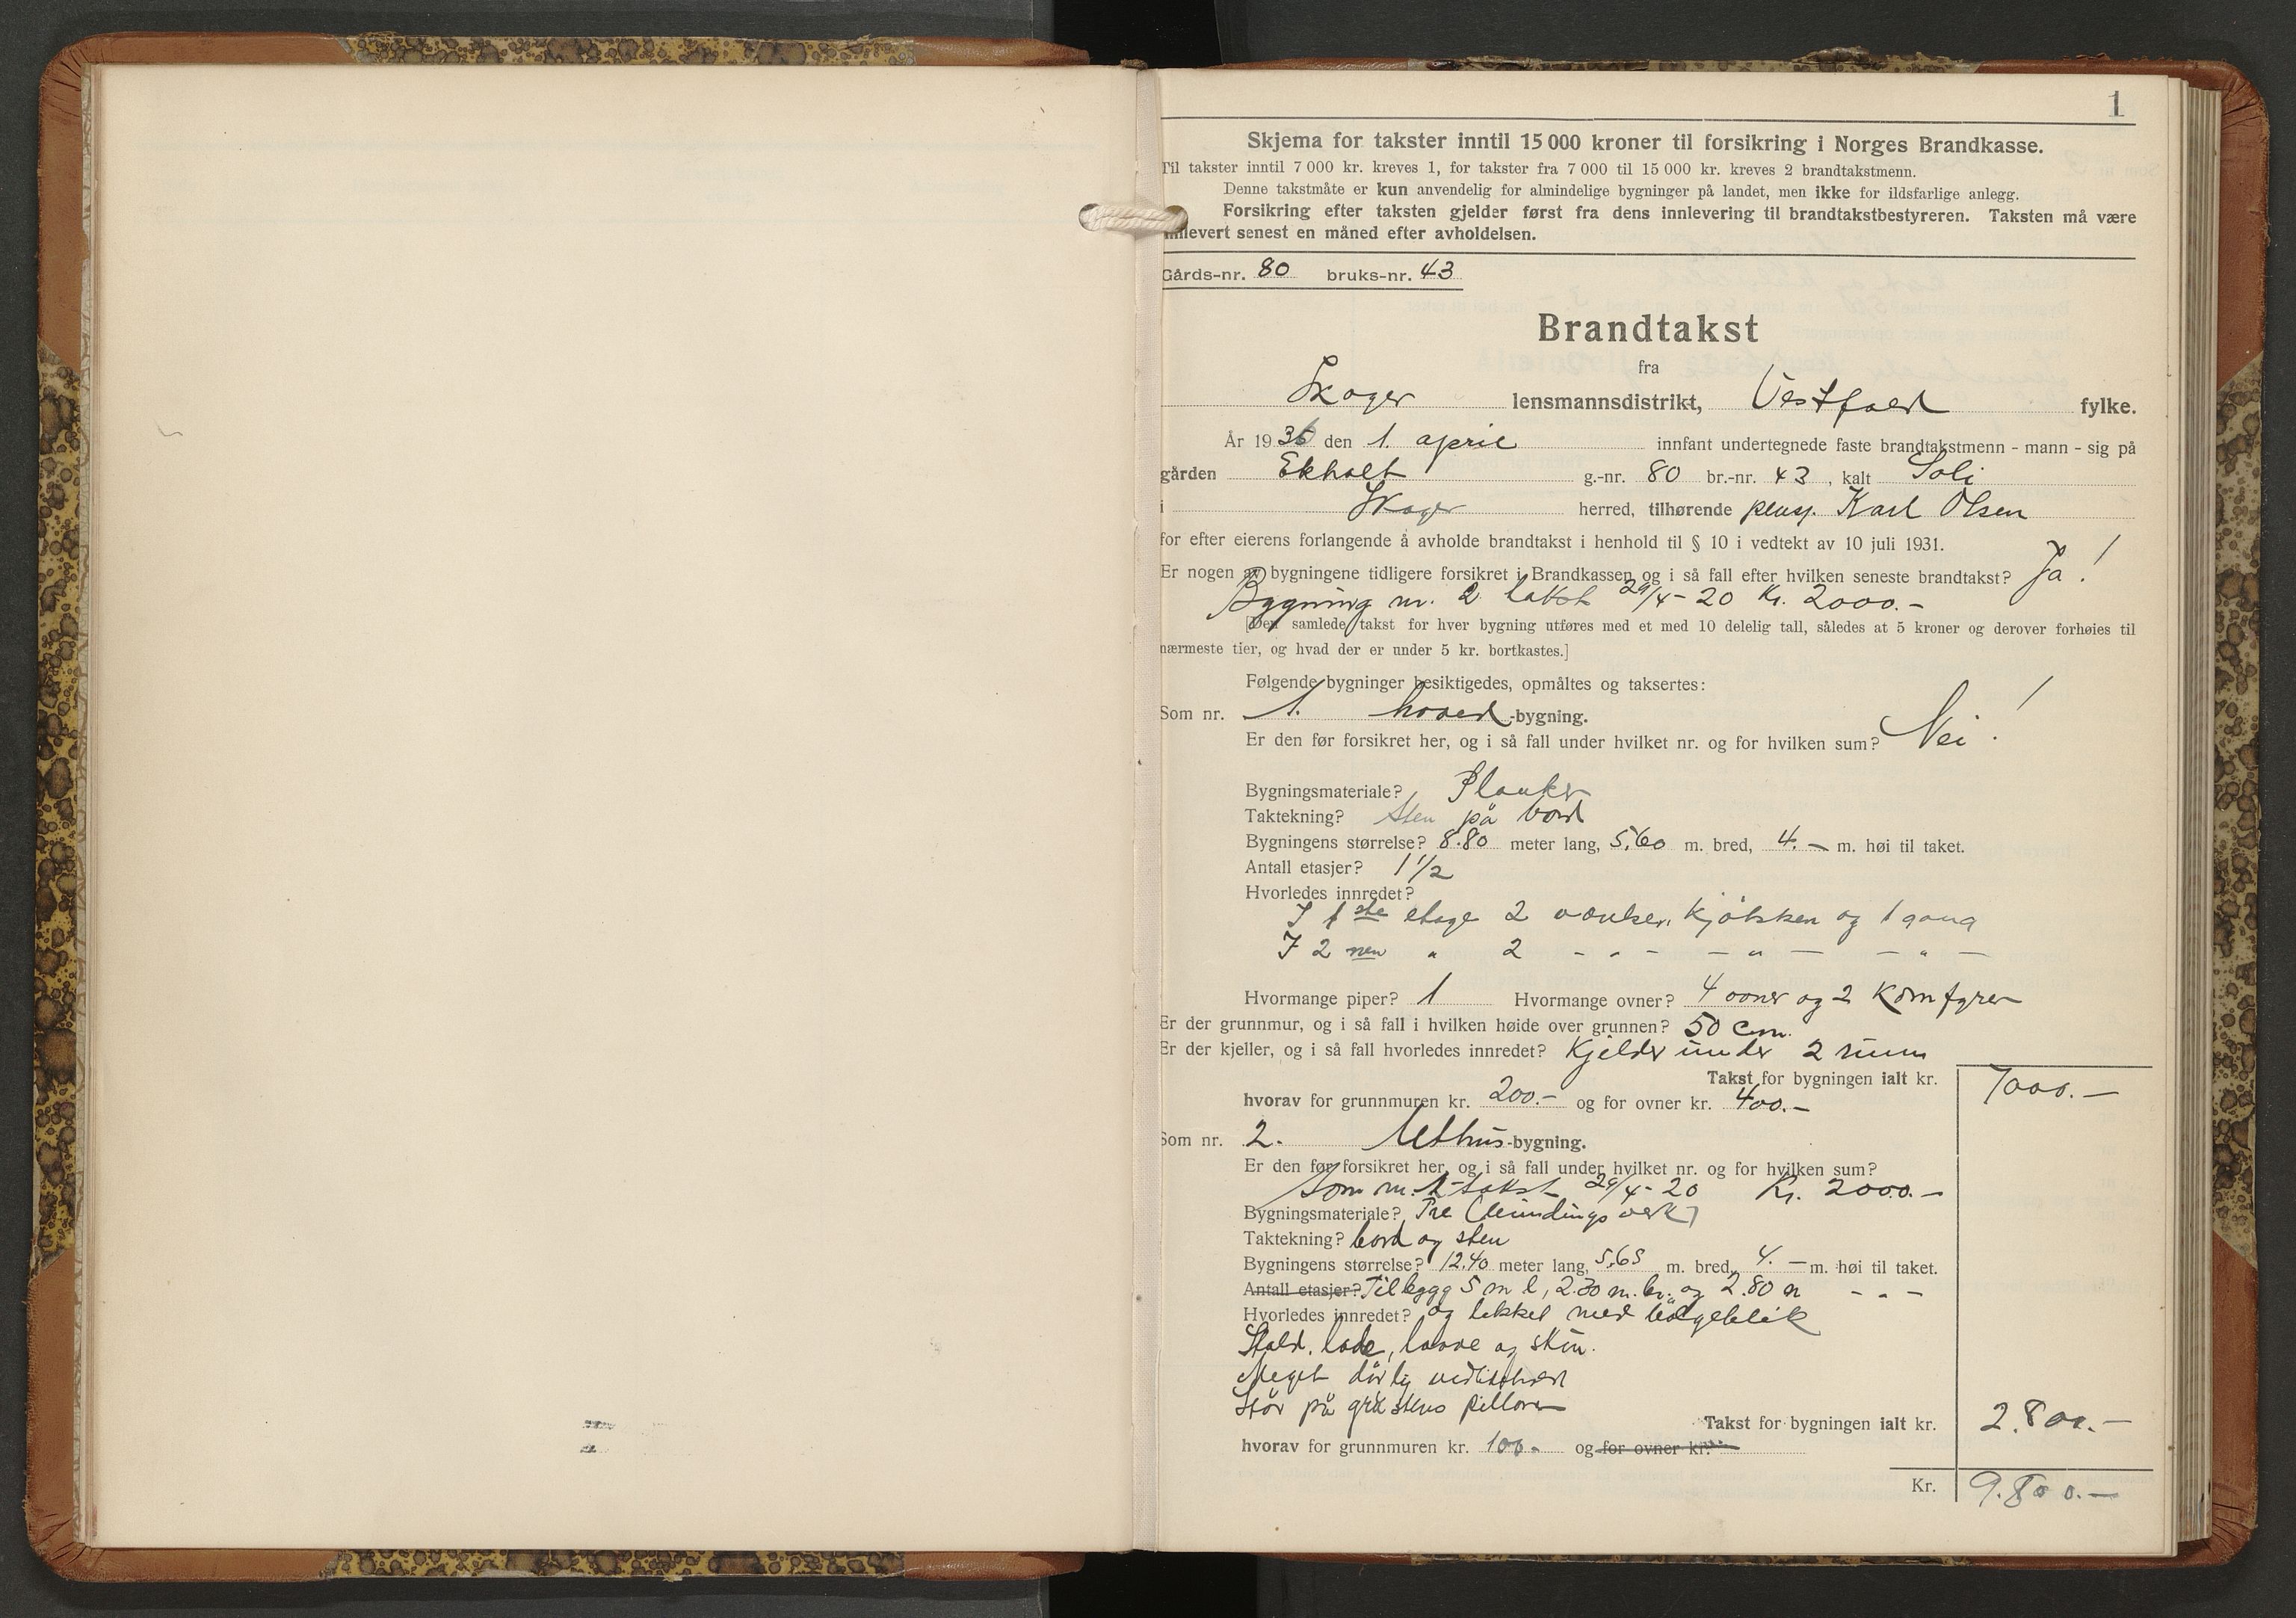 1
Skjema for takster inntil 15 000 kroner til forsikring i Norges Brandkasse.
Til takster inntil 7 000 kr. kreves 1, for takster fra 7 000 til 15 000 kr. kreves 2 brandtakstmenn.
Denne takstmåte er kun anvendelig for almindelige bygninger på landet, men ikke for ildsfarlige anlegg.
Forsikring efter taksten gjelder først fra dens innlevering til brandtakstbestyreren. Taksten må være
innlevert senest en måned efter avholdelsen.
Gårds-nr. 80 bruks-nr. 43
Brandtakst
fra
Skoger lensmannsdistrikt, Vestfold fylke.
År 1936 den 1. april innfant undertegnede faste brandtakstmenn - mann - sig på
gården Ekholt g.-nr. 80 br.-nr. 43, kalt Soli
i Skoger herred, tilhørende pensj. Karl Olsen
for efter eierens forlangende å avholde brandtakst i henhold til § 10 i vedtekt av 10 juli 1931.
Er nogen av bygningene tidligere forsikret i Brandkassen og i så fall efter hvilken seneste brandtakst? Ja!
Bygning nr. 2 takst 29/4-20 Kr. 2000.-
[Den samlede takst for hver bygning utføres med et med 10 delelig tall, således at 5 kroner og derover forhøies til
nærmeste tier, og hvad der er under 5 kr. bortkastes.]
Følgende bygninger besiktigedes, opmåltes og taksertes:
Som nr. 1. hoved-bygning.
Er den før forsikret her, og i så fall under hvilket nr. og for hvilken sum? Nei!
Bygningsmateriale? Planker
Taktekning? Sten på bord
Bygningens størrelse? 8.80 meter lang, 5,60 m. bred, 4.- m. høi til taket.
Antall etasjer? 1 1/2
Hvorledes innredet?
I 1ste etage 2 værelser, kjøkken og 1 gang
I 2nen " 2 - " - - " - - " -
Hvormange piper? 1 Hvormange ovner? 4 ovner og 2 komfyrer
Er der grunnmur, og i så fall i hvilken høide over grunnen? 50 cm.
Er der kjeller, og i så fall hvorledes innredet? Kjelder under 2 rum
Takst for bygningen ialt kr. 7000.-
hvorav for grunnmuren kr. 200.- og for ovner kr. 400.-
Som nr. 2. Uthus-bygning.
Er den før forsikret her, og i så fall under hvilket nr. og for hvilken sum?
Som nr. 1 takst 29/4-20 Kr. 2000.-
Bygningsmateriale? Tre (bindingsverk)
Taktekning? bord og sten
Bygningens størrelse? 12.40 meter lang, 5,65 m. bred, 4.- m. høi til taket.
Antall etasjer? Tilbygg 5 m l, 2.30 m. br. og 2.80 m - " -
Hvorledes innredet? og tekket med bølgeblik
Stald, lade, laave og skur.
Meget dårlig vedlikeholdt
Står på gråstens pillarer
Takst for bygningen ialt kr. 2.800.-
hvorav for grunnmuren kr. 100.- og for ovner kr.
Kr. 9.800.-